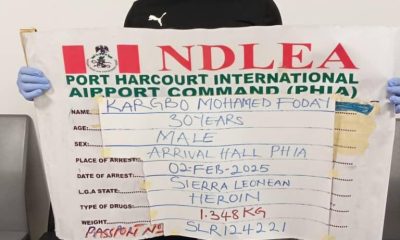 NDLEA
PORT HARCOURT INTERNATIONAL
AIRPORT COMMAND (PHIA)
NAME: KARGBO MOHAMED FODAY
AGE: 30 YEARS
SEX: MALE
PLACE OF ARREST: ARRIVAL HALL PHIA
DATE OF ARREST: 02-FEB-2025
L.G.A STATE: SIERRA LEONEAN
TYPE OF DRUGS: HEROIN
WEIGHT 1.348KG
PASSPORT NO SLR124221